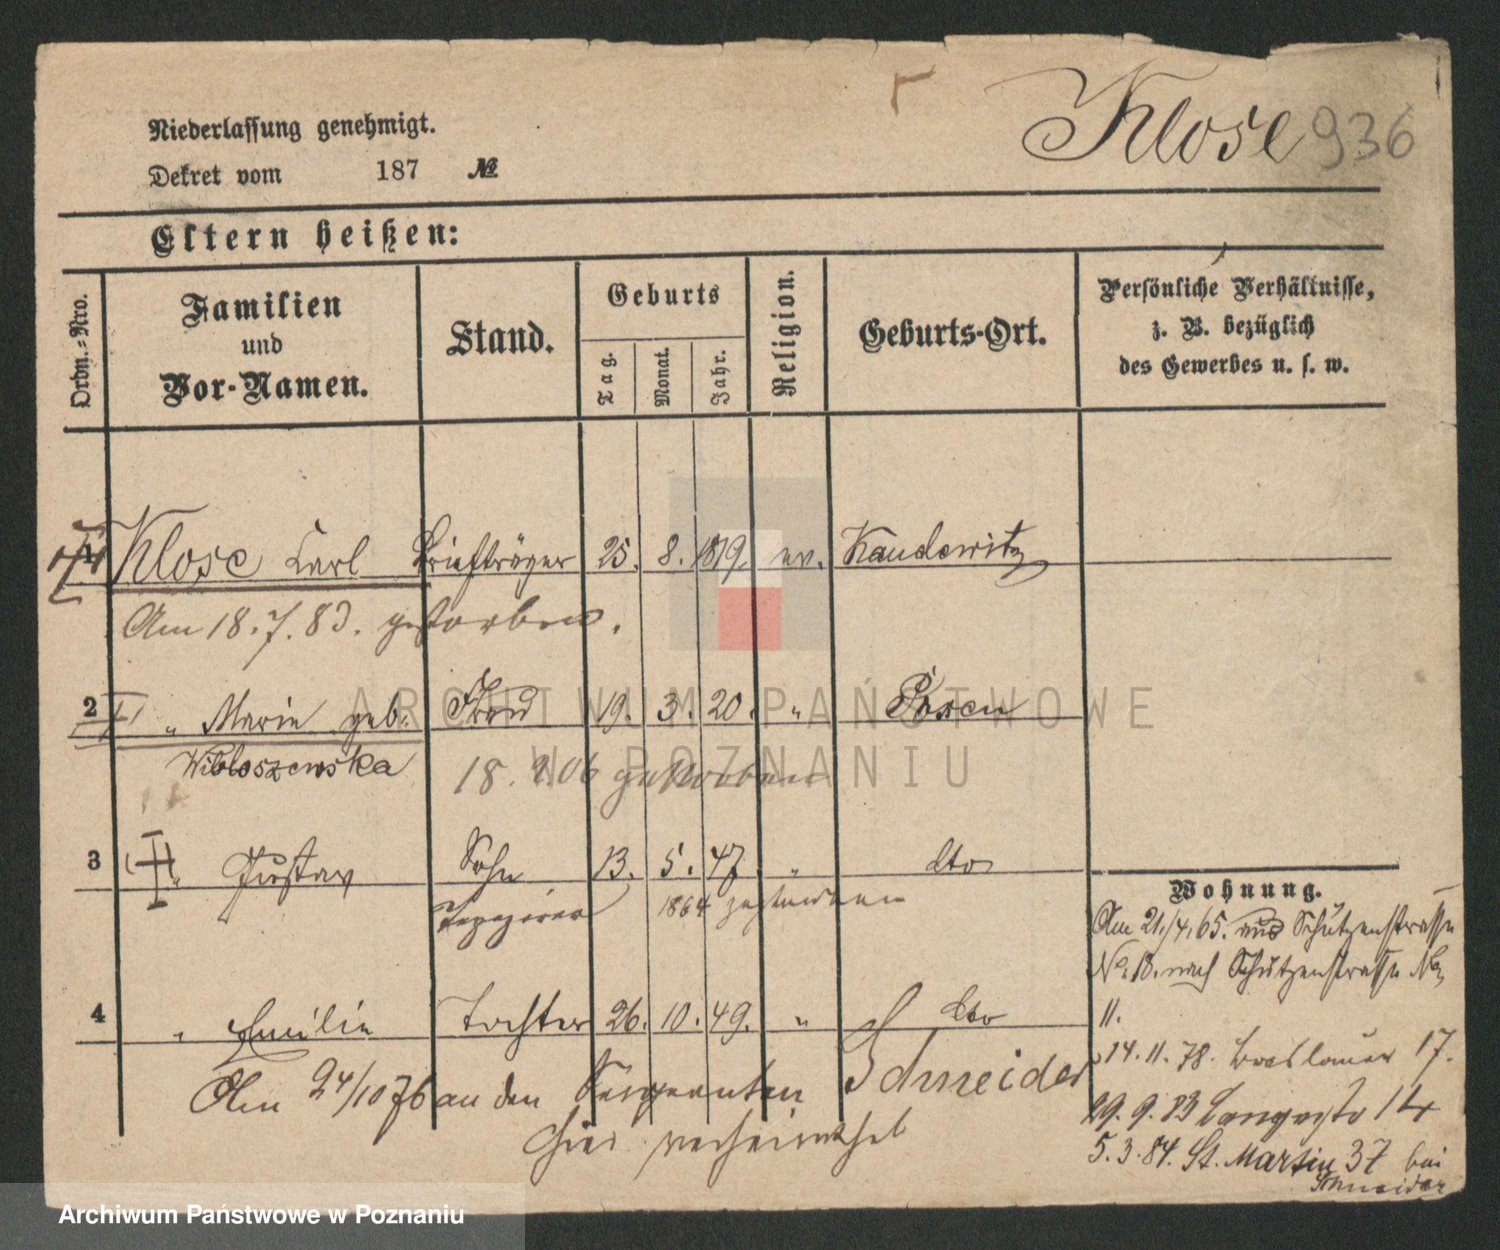 Klose 936
Niederlassung genehmigt.
Dekret vom 187 №
Eltern heißen:
Ordn.-Nro.
Familien
und
Vor-Namen.
Stand.
Geburts
Tag.
Monat.
Jahr.
Religion.
Geburts-Ort.
Persönliche Verhältnisse,
z. B. bezüglich
des Gewerbes u. s. w.
1 Klose Carl Briefträger 25. 8. 1819. ev. Kaudewitz
Am 18.7.83. gestorben.
2 " Marie geb. Frau 19. 3. 20. " Posen
18. 06 gestorben
3 " Gustav Sohn 13. 5. 47. " dto
1864
4 " Emilie Tochter 26. 10. 49. " dto
Am 24/10 76 an den Sergeanten Schneider
hier verheirathet
Wohnung.
Am 21./4. 65. aus Schützenstrasse
No. 18. nach Schützenstrasse No
11.
14. 11. 78. Breslauer 17.
29. 9. 83 Langestr 14
5. 3. 84. St. Martin 37 bei
Schneider
ARCHIWUM PAŃSTWOWE
W POZNANIU
Archiwum Państwowe w Poznaniu